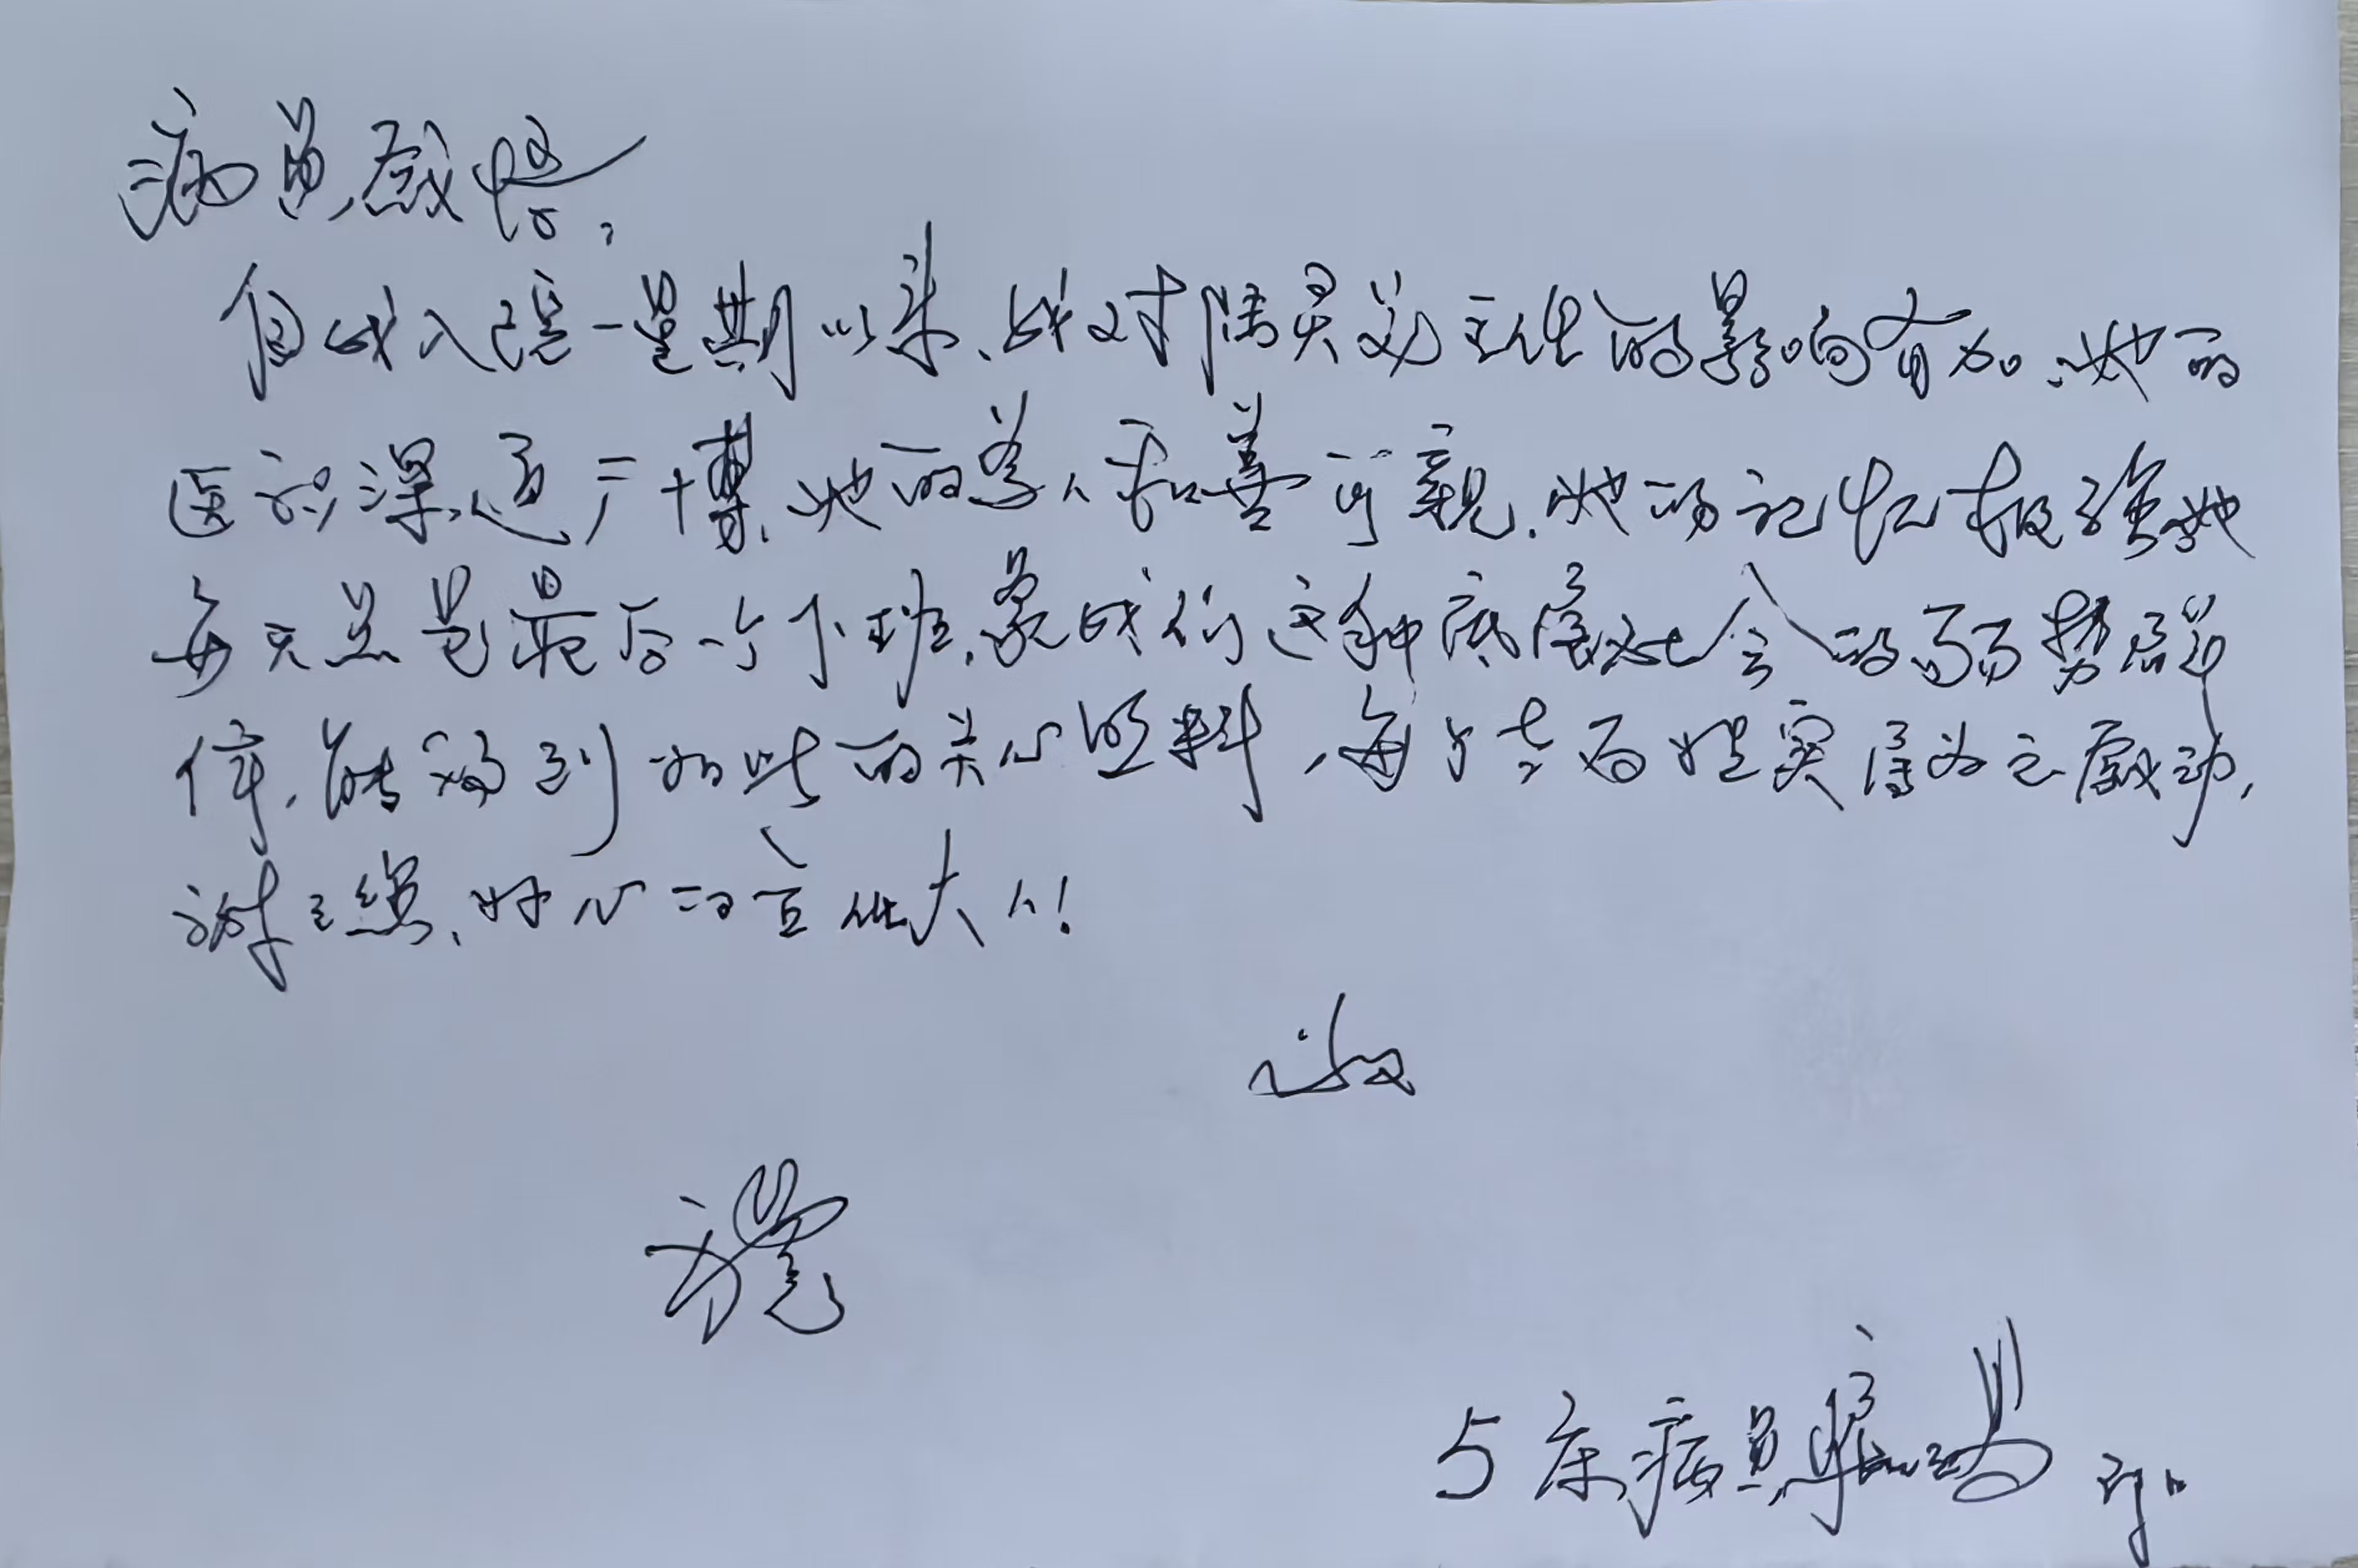 病员感悟,
自我入院一星期以来、我对陆灵美主任的影响有加、她的
医术深远广博、她的为人和善可亲.她的记忆极强她
每天总是最后一个下班.象我们这种底层社会的弱势群
体,能得到如此的关心照料,每个老百姓实得为之感动,
谢主您、好心的主任大人!
致
礼
5床病员